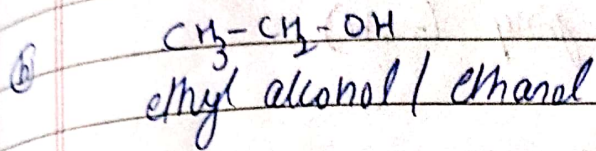 (b) CH₃-CH₂-OH
ethyl alcohol / ethanol